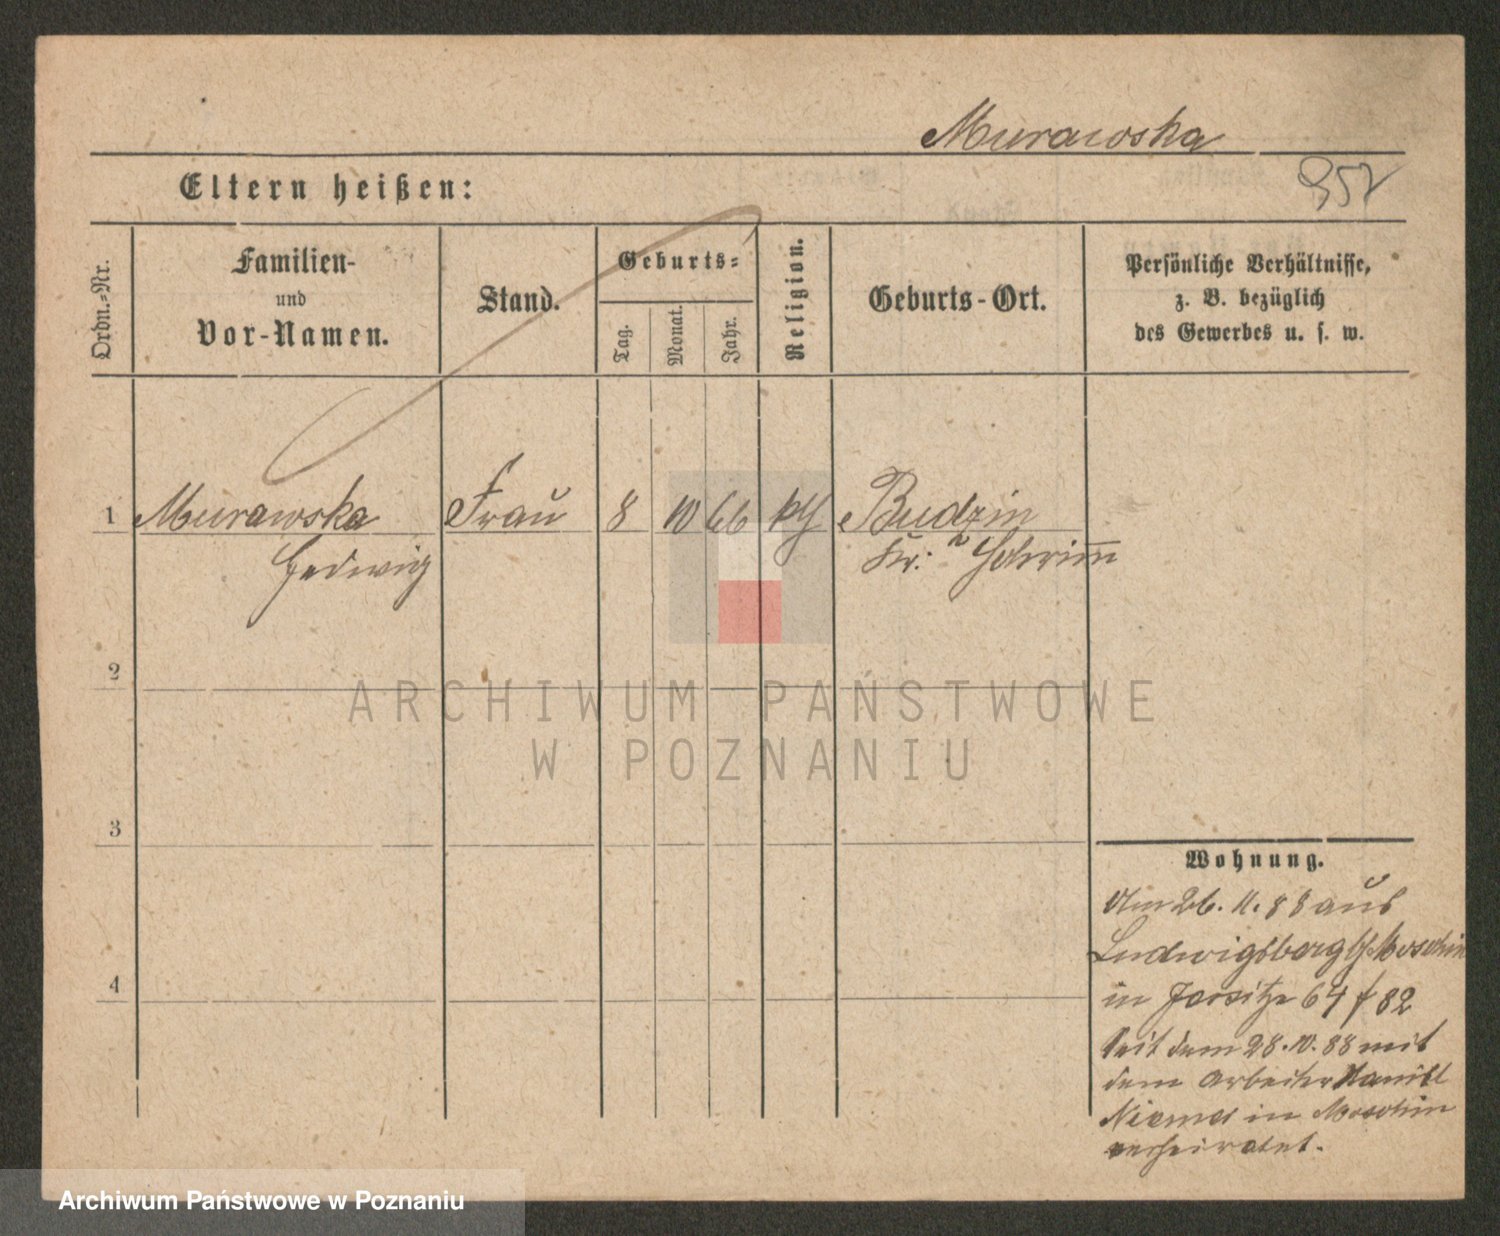 Murawska
952
Eltern heißen:
Ordn.-Nr.
Familien-
und
Vor-Namen.
Stand.
Geburts-
Tag.
Monat.
Jahr.
Religion.
Geburts-Ort.
Persönliche Verhältnisse,
z. B. bezüglich
des Gewerbes u. s. w.
1 Murawska Frau 8 10 66 kth Budzin
Hedwig Kr. Schrimm
2
3
4
Wohnung.
Am 26. 11. 88 aus
Ludwigsberg b/ Moschin
in Jersitz 64 f 82
Seit dem 28. 10. 88 mit
dem Arbeiter
in Moschin
verheiratet.
ARCHIWUM PAŃSTWOWE
W POZNANIU
Archiwum Państwowe w Poznaniu